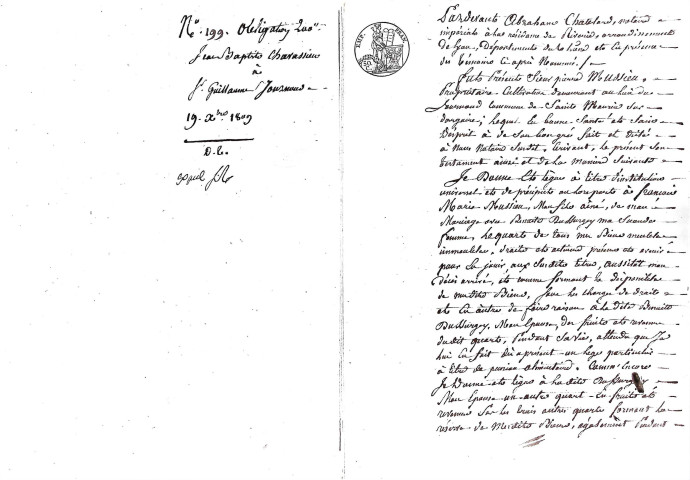 No. 199. Obligation 200#.
Jean Baptiste Chavassieu
à
Sr. Guillaume Journoud
19. Xbre 1809
D. C.
exped
Pardevant Abraham Chatelard, notaire
impérial à la résidence de Riverie, arrondissement
de Lyon, Département du Rhône et en présence
des témoins ci après Nommés /.
Fut Présent Sieur pierre Mussieu,
Propriétaire Cultivateur demeurant au lieu du
commune de Sainte Maurice sur
dargoire; lequel en bonne Santé et Sain
Desprit a de Son bon gré fait et dicté
à Nous Notaire Susdit, Écrivant, le présent Son
testament ainsi et de la Manière Suivante
Je Donne et lègue à titre d'institution
universel et de préciput au hors part à francois
Marie Mussieu, Mon fils ainé, de mon
Mariage avec Benoite ma Seconde
femme, le quart de tous mes Biens meubles
immeubles, droits et actions présens et avenir
pour En jouir aux Susdits titres, aussitôt mon
décès arrivé, et comme formant la disponible
de mesdits Biens, Sous les charges de droit
et En outre de faire raison à la dite Benoite
Mon Epouse, des fruits et revenus
dudit quart, Pendant Sa vie, attendu que Je
lui En fait Dès à présent un legs particulier
à titre de pension alimentaire. Comm' Encore
Je Donne et lègue à ladite
Mon Epouse un autre quart En fruits et
revenus Sur les trois autres quarts formant la
réserve de Mesdits Biens, également Pendant